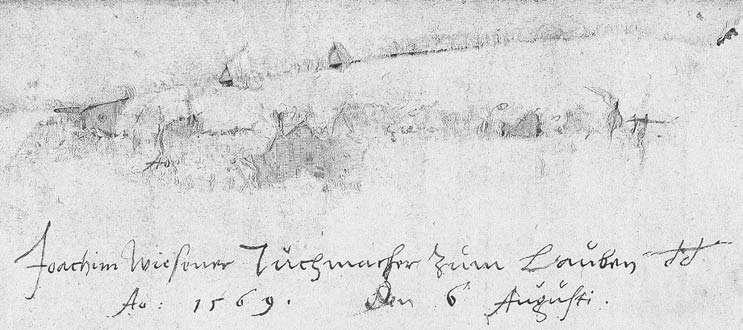 Ao
Joachim Wiesener Tuchmacher zum Lauben dd
Ao: 1569. Den 6 Augusti.